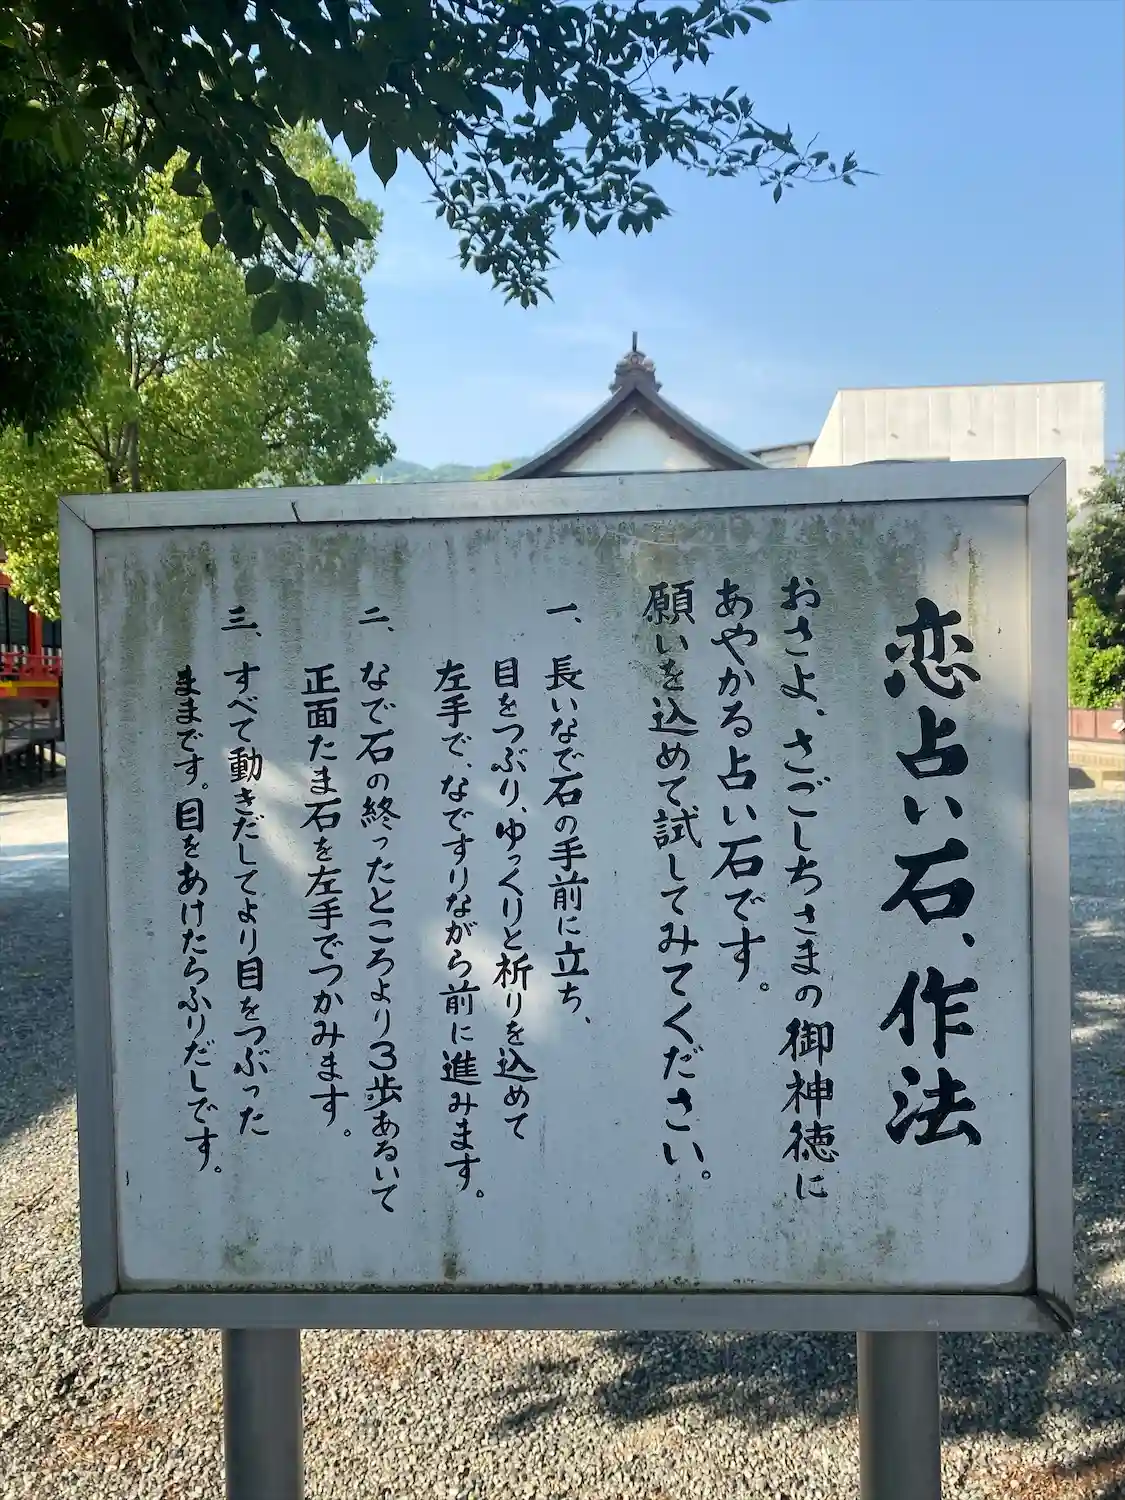 恋占い石、作法
おさよ、さごしちさまの御神徳に
あやかる占い石です。
願いを込めて試してみてください。
一、長いなで石の手前に立ち、
目をつぶり、ゆっくりと祈りを込めて
左手で、なですりながら前に進みます。
二、なで石の終ったところより3歩あるいて
正面たま石を左手でつかみます。
三、すべて動きだしてより目をつぶった
ままです。目をあけたらふりだしです。